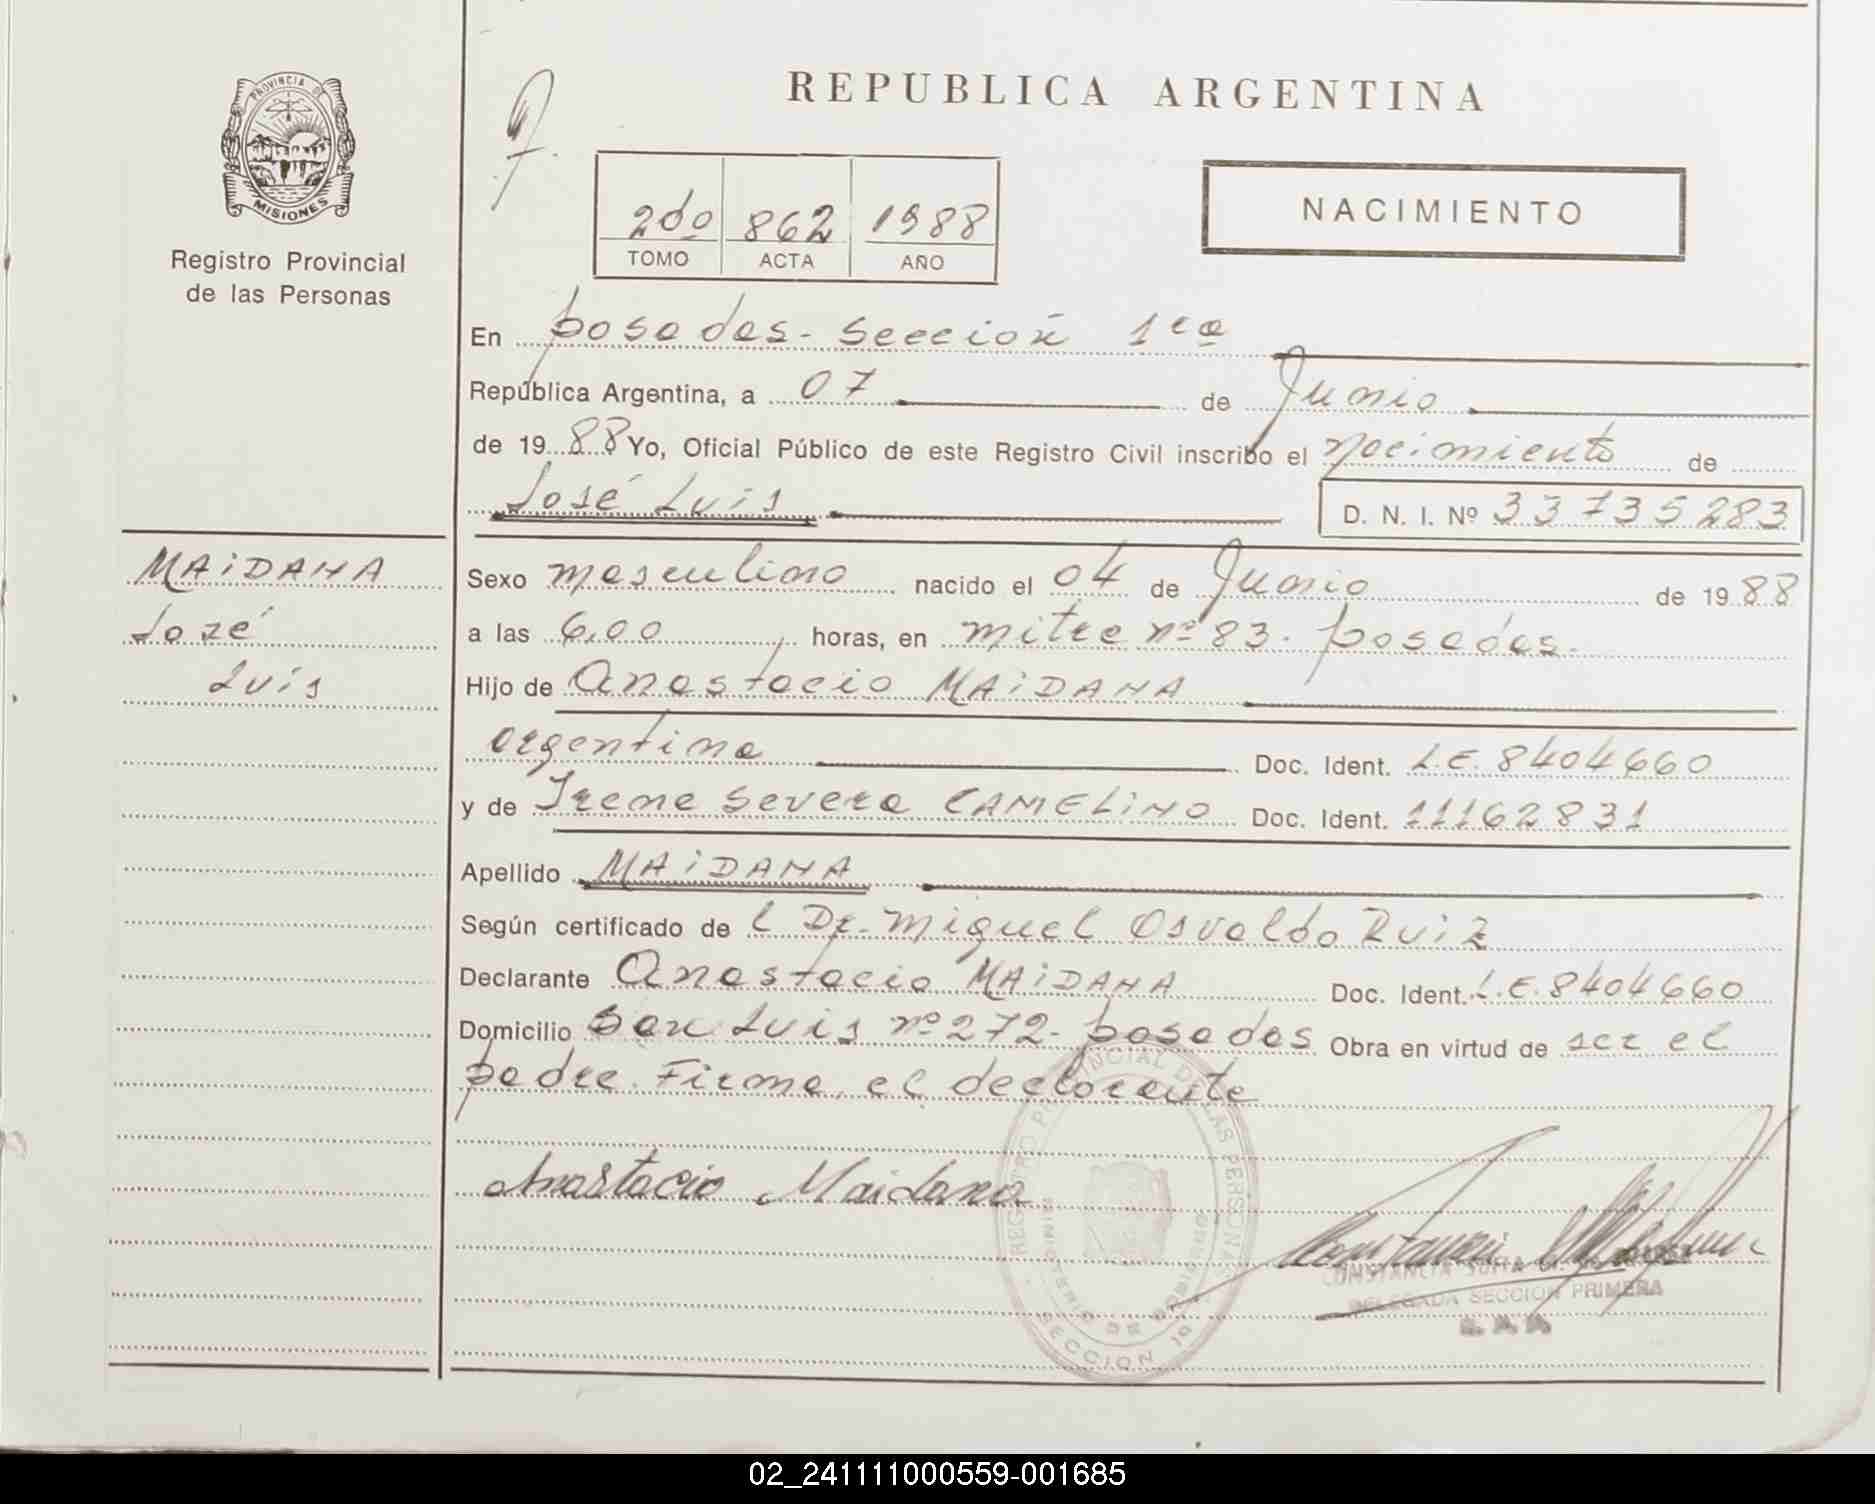 PROVINCIA DE
MISIONES
Registro Provincial
de las Personas
REPUBLICA ARGENTINA
2do 862 1988
TOMO ACTA AÑO
NACIMIENTO
En posadas - Sección 1ra
República Argentina, a 07 de Junio
de 1988 Yo, Oficial Público de este Registro Civil inscribo el nacimiento de
José Luis D. N. I. Nº 33735283
MAIDANA
José
Luis
Sexo masculino nacido el 04 de Junio de 1988
a las 6,00 horas, en mitre nº 83. posadas.
Hijo de Anastacio MAIDANA
argentina Doc. Ident. L.E. 8404660
y de Irene Severa CAMELINO Doc. Ident. 11162831
Apellido MAIDANA
Según certificado de l Dr. Miguel Osvaldo Ruiz
Declarante Anastacio MAIDANA Doc. Ident. L.E. 8404660
Domicilio San Luis nº 272 - posadas Obra en virtud de ser el
padre. Firma el declarante
Anastacio Maidana
REGISTRO PROVINCIAL DE LAS PERSONAS
MINISTERIO DE GOBIERNO
SECCION 1ª
CONSTANCIA
DELEGADA SECCION PRIMERA
02_241111000559-001685